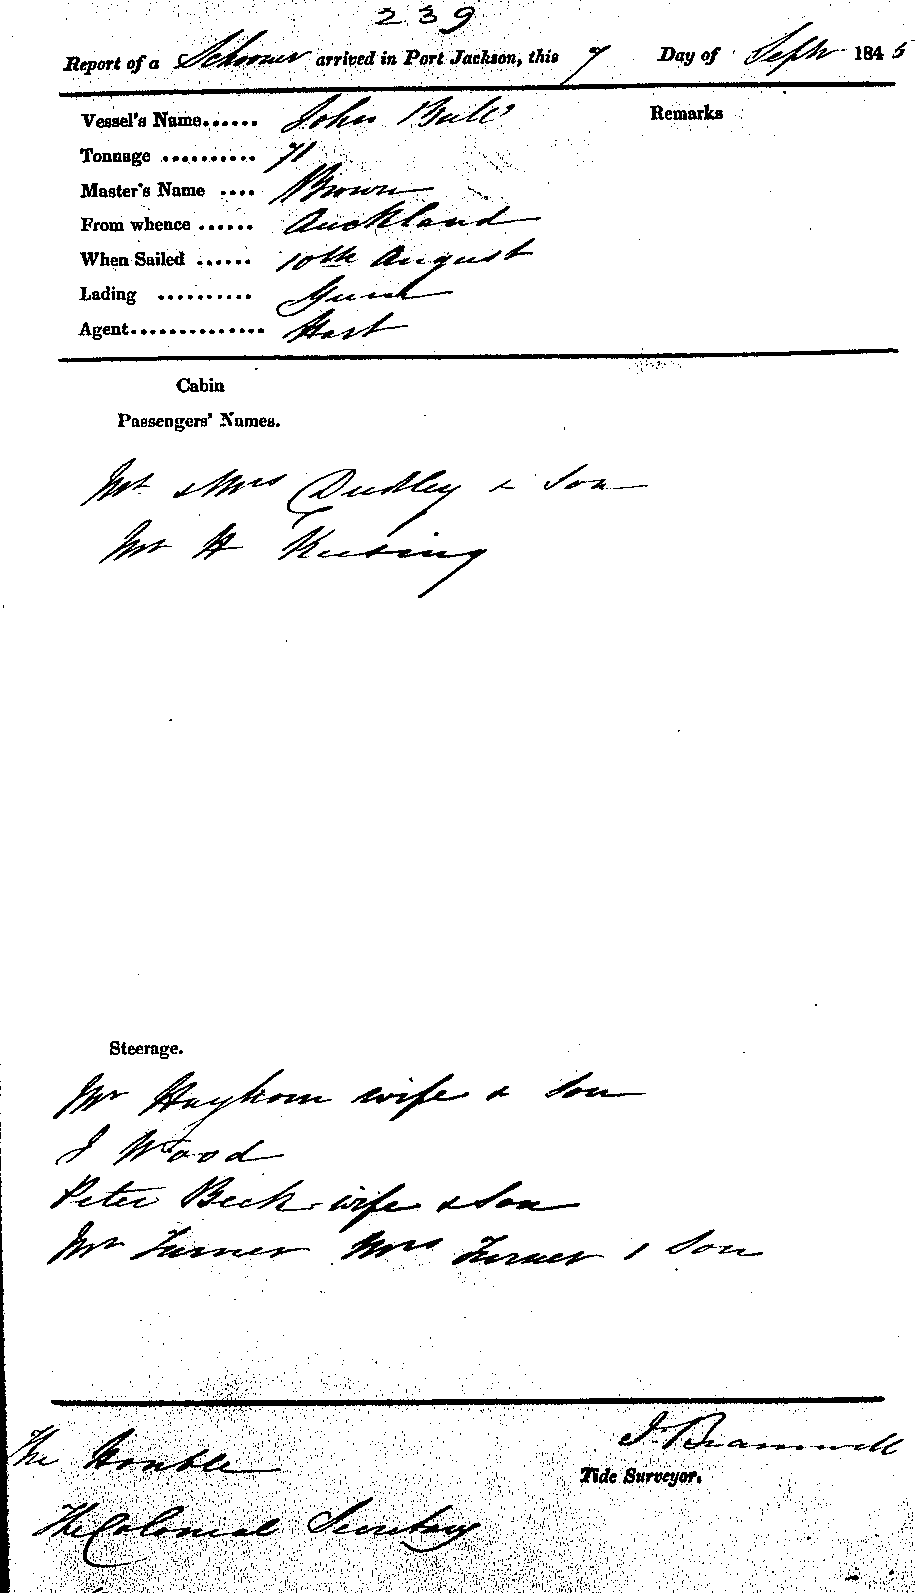 239
Report of a Schooner arrived in Port Jackson, this 7 Day of Septr 1845
Vessel's Name...... John Bull
Remarks
Tonnage .......... 71
Master's Name .... Brown
From whence ...... Auckland
When Sailed ...... 10th August
Lading .......... Gum
Agent.............. Hart
Cabin
Passengers' Names.
Mr & Mrs Dudley & Son
Mr H Keesing
Steerage.
Mr wife & Son
J Wood
Peter Beck wife & Son
Mr Turner Mrs Turner 1 Son
Js Bramwell
Tide Surveyor.
The Honble
The Colonial Secretary